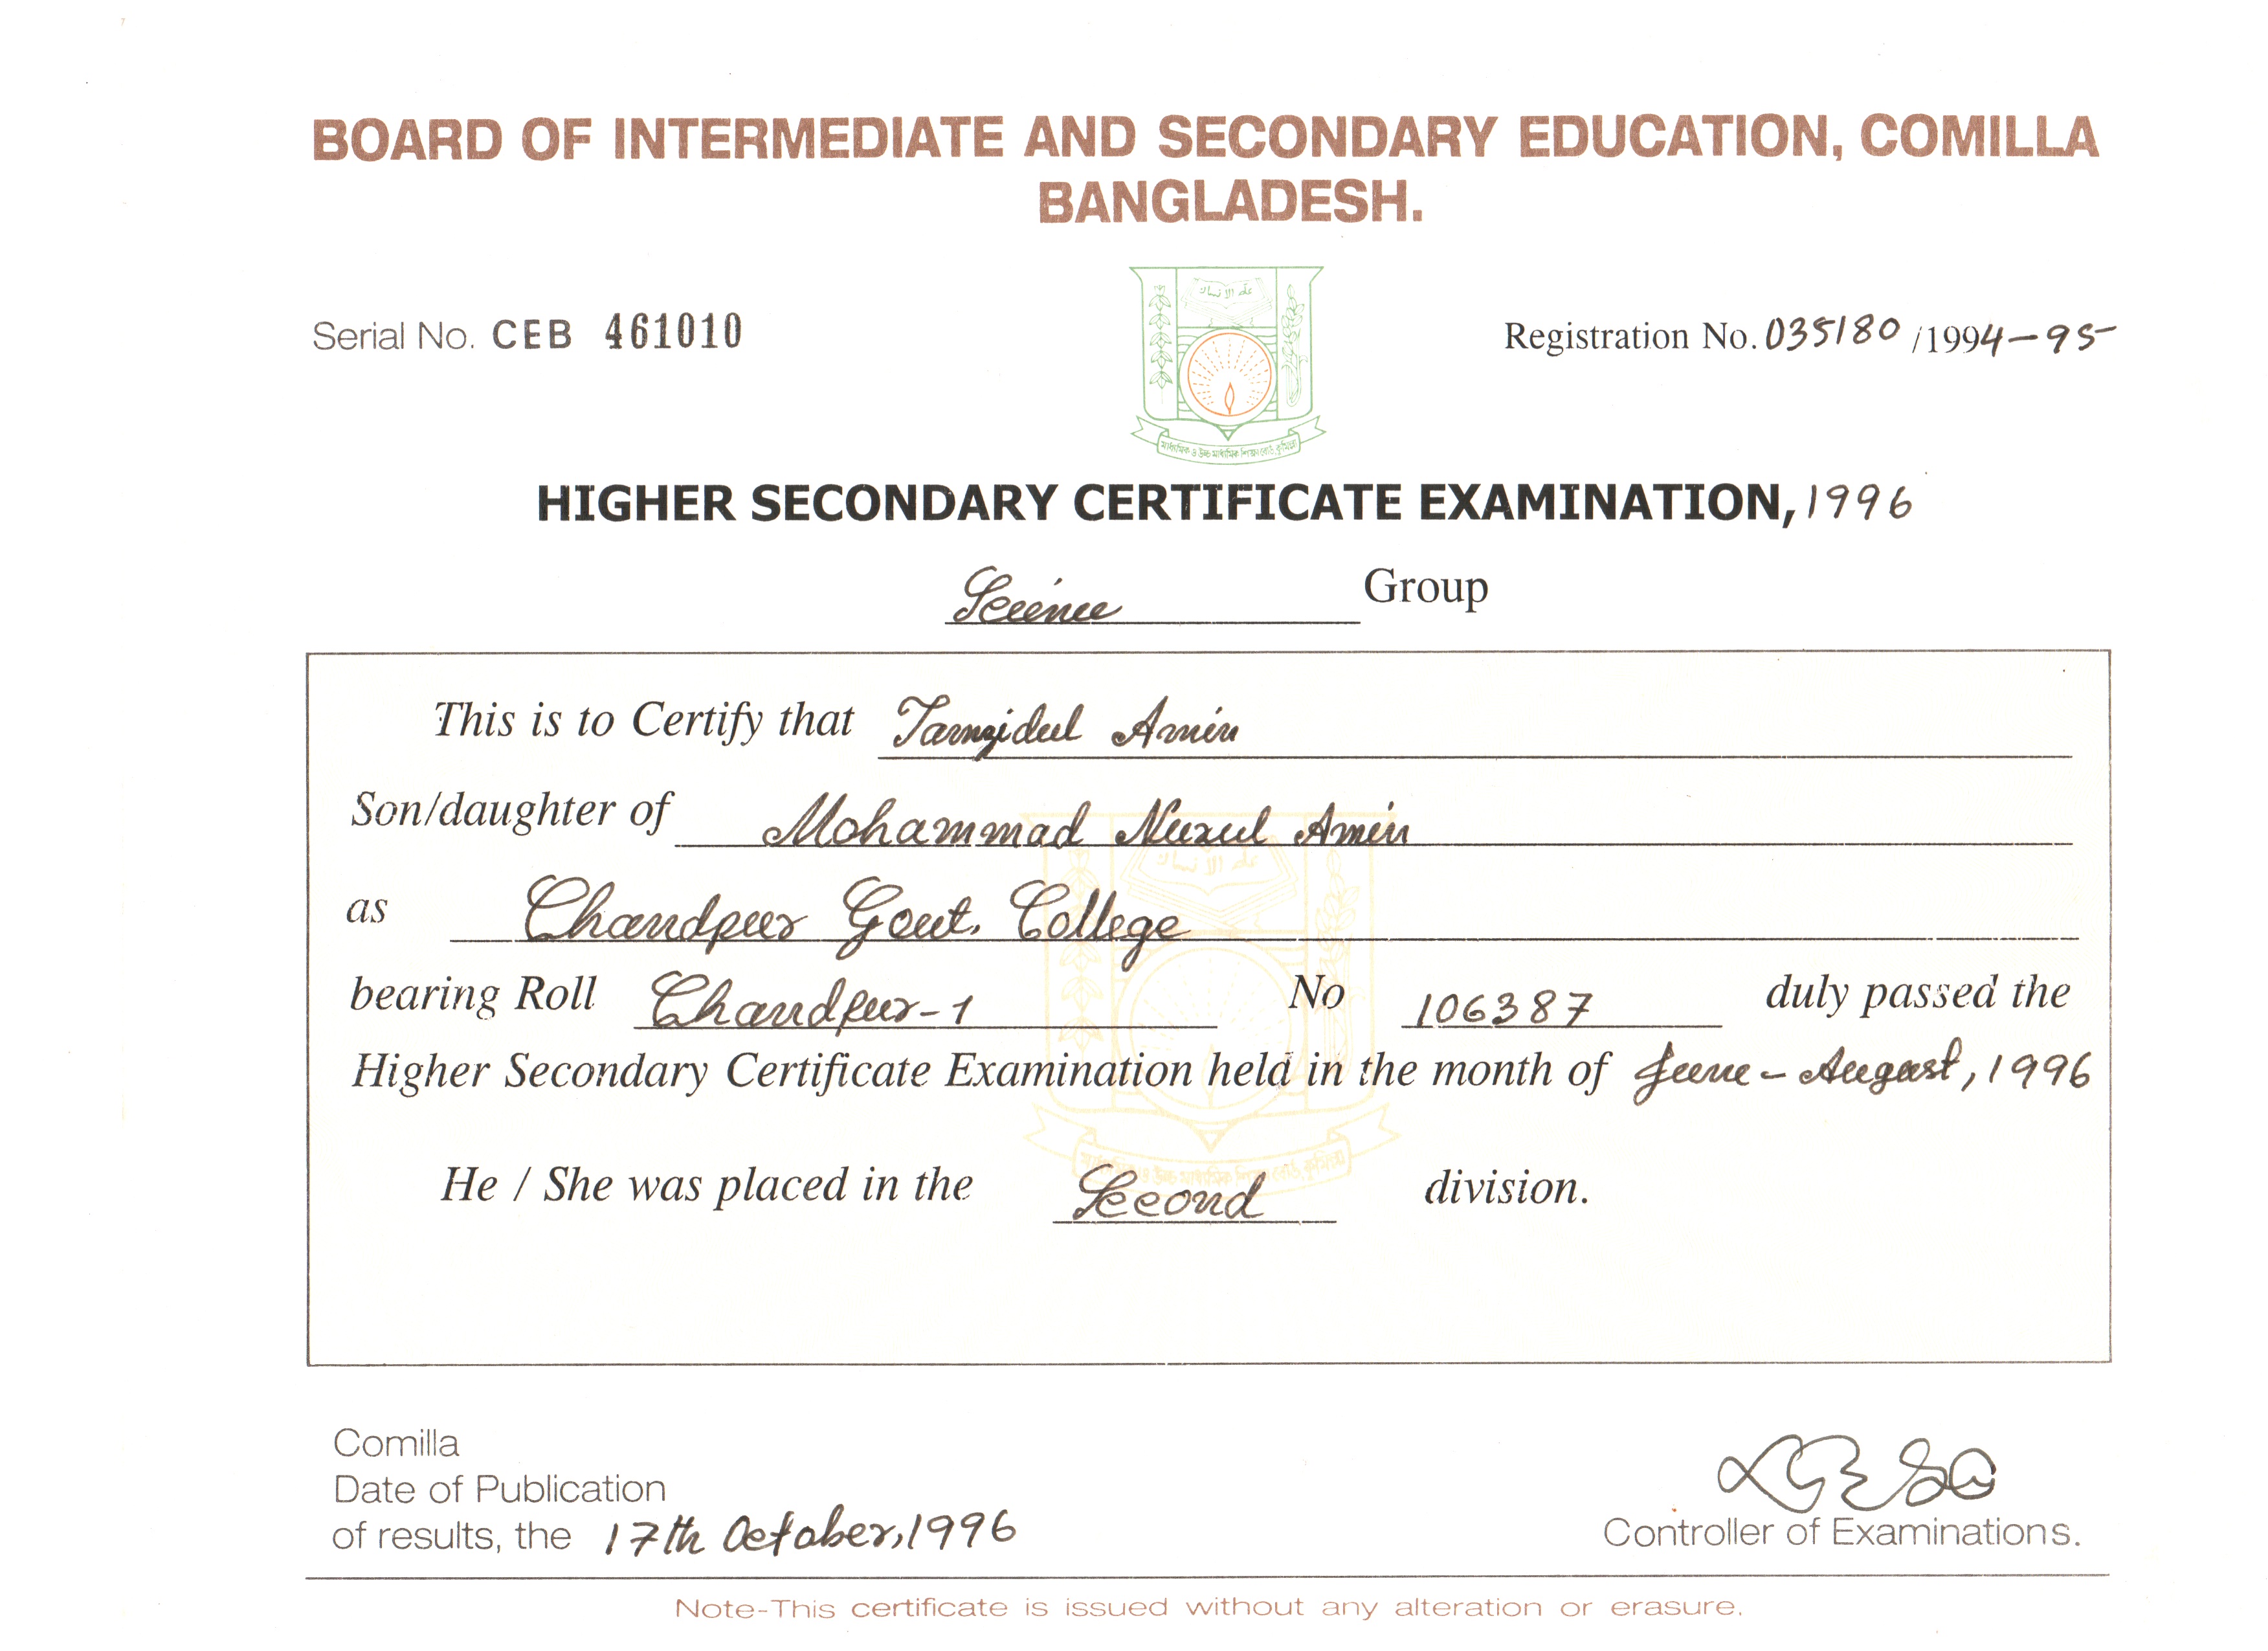 BOARD OF INTERMEDIATE AND SECONDARY EDUCATION, COMILLA
BANGLADESH.
Serial No. CEB 461010
Registration No. 035180 /1994-95
মাধ্যমিক ও উচ্চ মাধ্যমিক শিক্ষা বোর্ড, কুমিল্লা
HIGHER SECONDARY CERTIFICATE EXAMINATION, 1996
Science Group
This is to Certify that Tamzidul Amin
Son/daughter of Mohammad Nurul Amin
as Chandpur Govt. College
bearing Roll Chandpur-1 No 106387 duly passed the
Higher Secondary Certificate Examination held in the month of June - August, 1996
He / She was placed in the Second division.
Comilla
Date of Publication
of results, the 17th October, 1996
Controller of Examinations.
Note-This certificate is issued without any alteration or erasure.